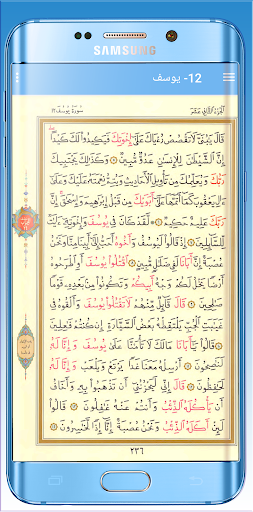 SAMSUNG
12- يوسف
الجزء الثاني عشر
سورة يوسف ١٢
قَالَ يَٰبُنَىَّ لَا تَقْصُصْ رُءْيَاكَ عَلَىٰٓ إِخْوَتِكَ فَيَكِيدُوا۟ لَكَ كَيْدًا
إِنَّ ٱلشَّيْطَٰنَ لِلْإِنسَٰنِ عَدُوٌّ مُّبِينٌ ۝ وَكَذَٰلِكَ يَجْتَبِيكَ
رَبُّكَ وَيُعَلِّمُكَ مِن تَأْوِيلِ ٱلْأَحَادِيثِ وَيُتِمُّ نِعْمَتَهُۥ عَلَيْكَ وَعَلَىٰٓ
ءَالِ يَعْقُوبَ كَمَآ أَتَمَّهَا عَلَىٰٓ أَبَوَيْكَ مِن قَبْلُ إِبْرَٰهِيمَ وَإِسْحَٰقَ إِنَّ
رَبَّكَ عَلِيمٌ حَكِيمٌ ۝ لَّقَدْ كَانَ فِى يُوسُفَ وَإِخْوَتِهِۦٓ ءَايَٰتٌ
لِّلسَّآئِلِينَ ۝ إِذْ قَالُوا۟ لَيُوسُفُ وَأَخُوهُ أَحَبُّ إِلَىٰٓ أَبِينَا مِنَّا وَنَحْنُ
عُصْبَةٌ إِنَّ أَبَانَا لَفِى ضَلَٰلٍ مُّبِينٍ ۝ ٱقْتُلُوا۟ يُوسُفَ أَوِ ٱطْرَحُوهُ
أَرْضًا يَخْلُ لَكُمْ وَجْهُ أَبِيكُمْ وَتَكُونُوا۟ مِنۢ بَعْدِهِۦ قَوْمًا
صَٰلِحِينَ ۝ قَالَ قَآئِلٌ مِّنْهُمْ لَا تَقْتُلُوا۟ يُوسُفَ وَأَلْقُوهُ فِى
غَيَٰبَتِ ٱلْجُبِّ يَلْتَقِطْهُ بَعْضُ ٱلسَّيَّارَةِ إِن كُنتُمْ فَٰعِلِينَ
۝ قَالُوا۟ يَٰٓأَبَانَا مَا لَكَ لَا تَأْمَ۫نَّا عَلَىٰ يُوسُفَ وَإِنَّا لَهُۥ
لَنَٰصِحُونَ ۝ أَرْسِلْهُ مَعَنَا غَدًا يَرْتَعْ وَيَلْعَبْ وَإِنَّا لَهُۥ
لَحَٰفِظُونَ ۝ قَالَ إِنِّى لَيَحْزُنُنِىٓ أَن تَذْهَبُوا۟ بِهِۦ وَأَخَافُ
أَن يَأْكُلَهُ ٱلذِّئْبُ وَأَنتُمْ عَنْهُ غَٰفِلُونَ ۝ قَالُوا۟
لَئِنْ أَكَلَهُ ٱلذِّئْبُ وَنَحْنُ عُصْبَةٌ إِنَّآ إِذًا لَّخَٰسِرُونَ ۝
٢٣٦